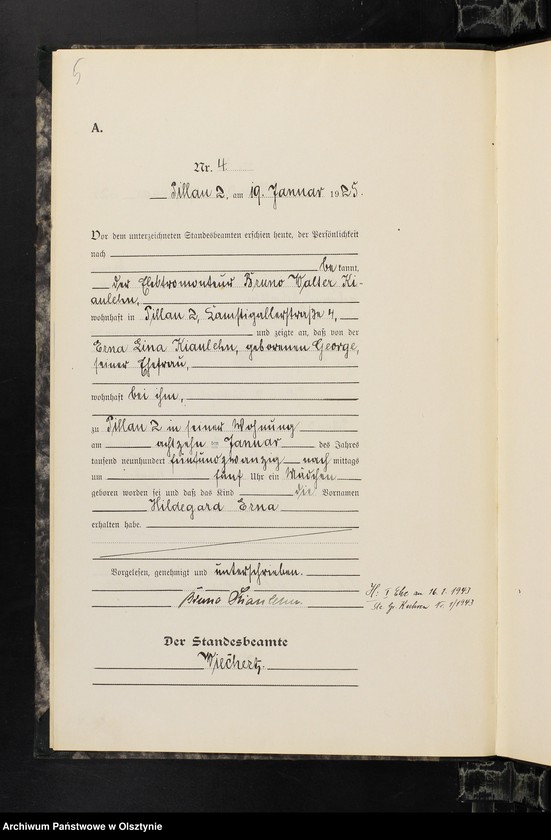 5
A.
Nr. 4
Pillau 2, am 19. Januar 1925.
Vor dem unterzeichneten Standesbeamten erschien heute, der Persönlichkeit
nach
bekannt,
der Elektromonteur Bruno Walter Ki-
aulehn,
wohnhaft in Pillau 2, Camstigallerstraße 4,
und zeigte an, daß von der
Erna Lina Kiaulehn, geborenen George,
seiner Ehefrau,
wohnhaft bei ihm,
zu Pillau 2 in seiner Wohnung
am achtzehn ten Januar des Jahres
tausend neunhundert fünfundzwanzig nach mittags
um fünf Uhr ein Mädchen
geboren worden sei und daß das Kind die Vornamen
Hildegard Erna
erhalten habe.
Vorgelesen, genehmigt und unterschrieben.
Bruno Kiaulehn.
H. I Ehe am 16.1.1943
1/1943
Der Standesbeamte
Wiechert.
Archiwum Państwowe w Olsztynie